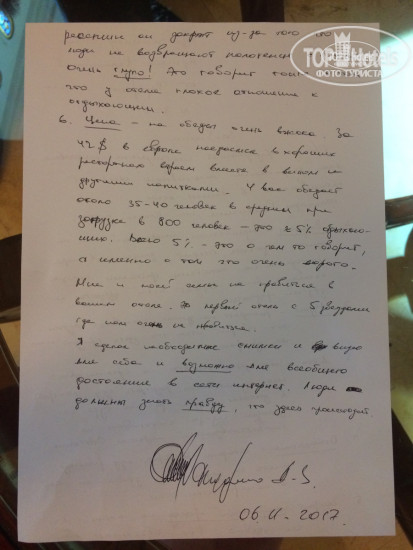 ресепшне он закрыт из-за того что
люди не возвращают полотенца
очень глупо! Это говорит то
что у отеля плохое отношение к
отдыхающим.
6. Цена – на обеды очень высока. За
42$ в европе накрасиво в хороших
ресторанах вместе с вином и
другими напитками. У вас обедает
около 35-40 человек в среднем при
загрузке в 800 человек – это ± 5% отдыхаю-
щих. Всего 5% - это о чем то говорит,
а именно о том что очень дорого.
Мне и моей семье не нравится в
вашем отеле. первый отель с 5 звездами
где нам не нравится.
Я сделал необходимые снимки и видио
для себя и возможно для всеобщего
достояние в сети интернет. Люди
должны знать правду, что здесь происходит
06.11.2017.
TOP Hotels
ФОТО ТУРИСТА